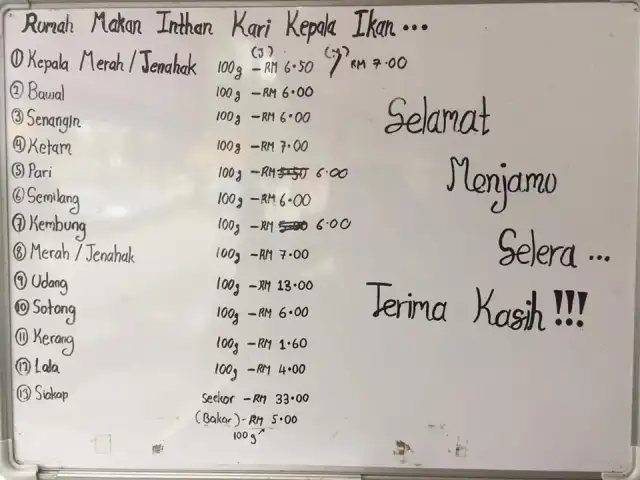 Rumah Makan Inthan Kari Kepala Ikan...
① Kepala Merah / Jenahak 100g (J) - RM 6.50 / RM 7.00
② Bawal 100g - RM 6.00
③ Senangin 100g - RM 6.00
④ Ketam 100g - RM 7.00
⑤ Pari 100g - RM 5.50 6.00
⑥ Semilang 100g - RM 6.00
⑦ Kembung 100g - RM 5.00 6.00
⑧ Merah / Jenahak 100g - RM 7.00
⑨ Udang 100g - RM 13.00
⑩ Sotong 100g - RM 6.00
⑪ Kerang 100g - RM 1.60
⑫ Lala 100g - RM 4.00
⑬ Siakap Seekor - RM 33.00
(Bakar) - RM 5.00
100g
Selamat
Menjamu
Selera...
Terima Kasih!!!